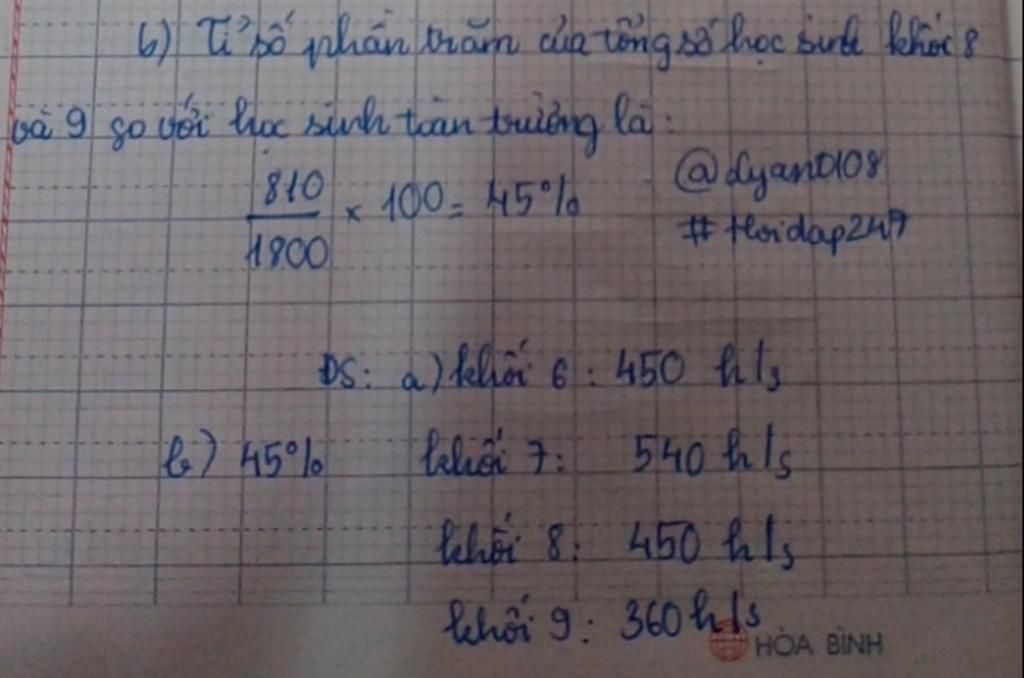 b) Tỉ số phần trăm của tổng số học sinh khối 8
và 9 so với học sinh toàn trường là:
810
1800
× 100 = 45%
@dyan0108
#Hoidap247
ĐS: a) khối 6 : 450 h/s
b) 45% khối 7: 540 h/s
khối 8: 450 h/s
khối 9: 360 h/s
HÒA BÌNH